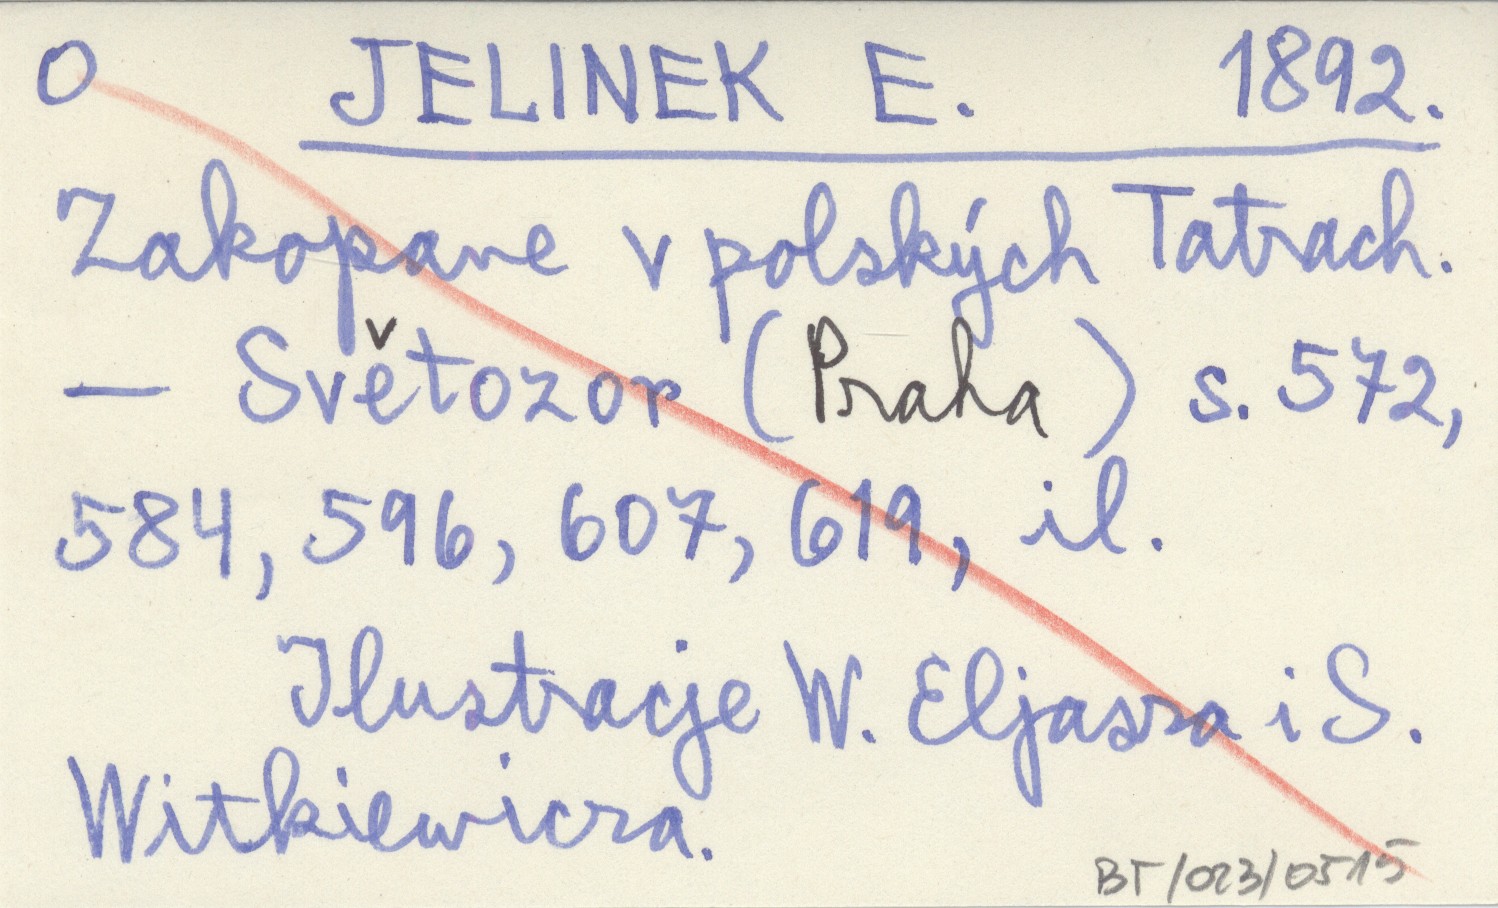 O JELINEK E. 1892.
Zakopane v polských Tatrach.
— Světozor (Praha) s. 572,
584, 596, 607, 619, il.
Ilustracje W. Eljasza i S.
Witkiewicza.
BT/023/0515